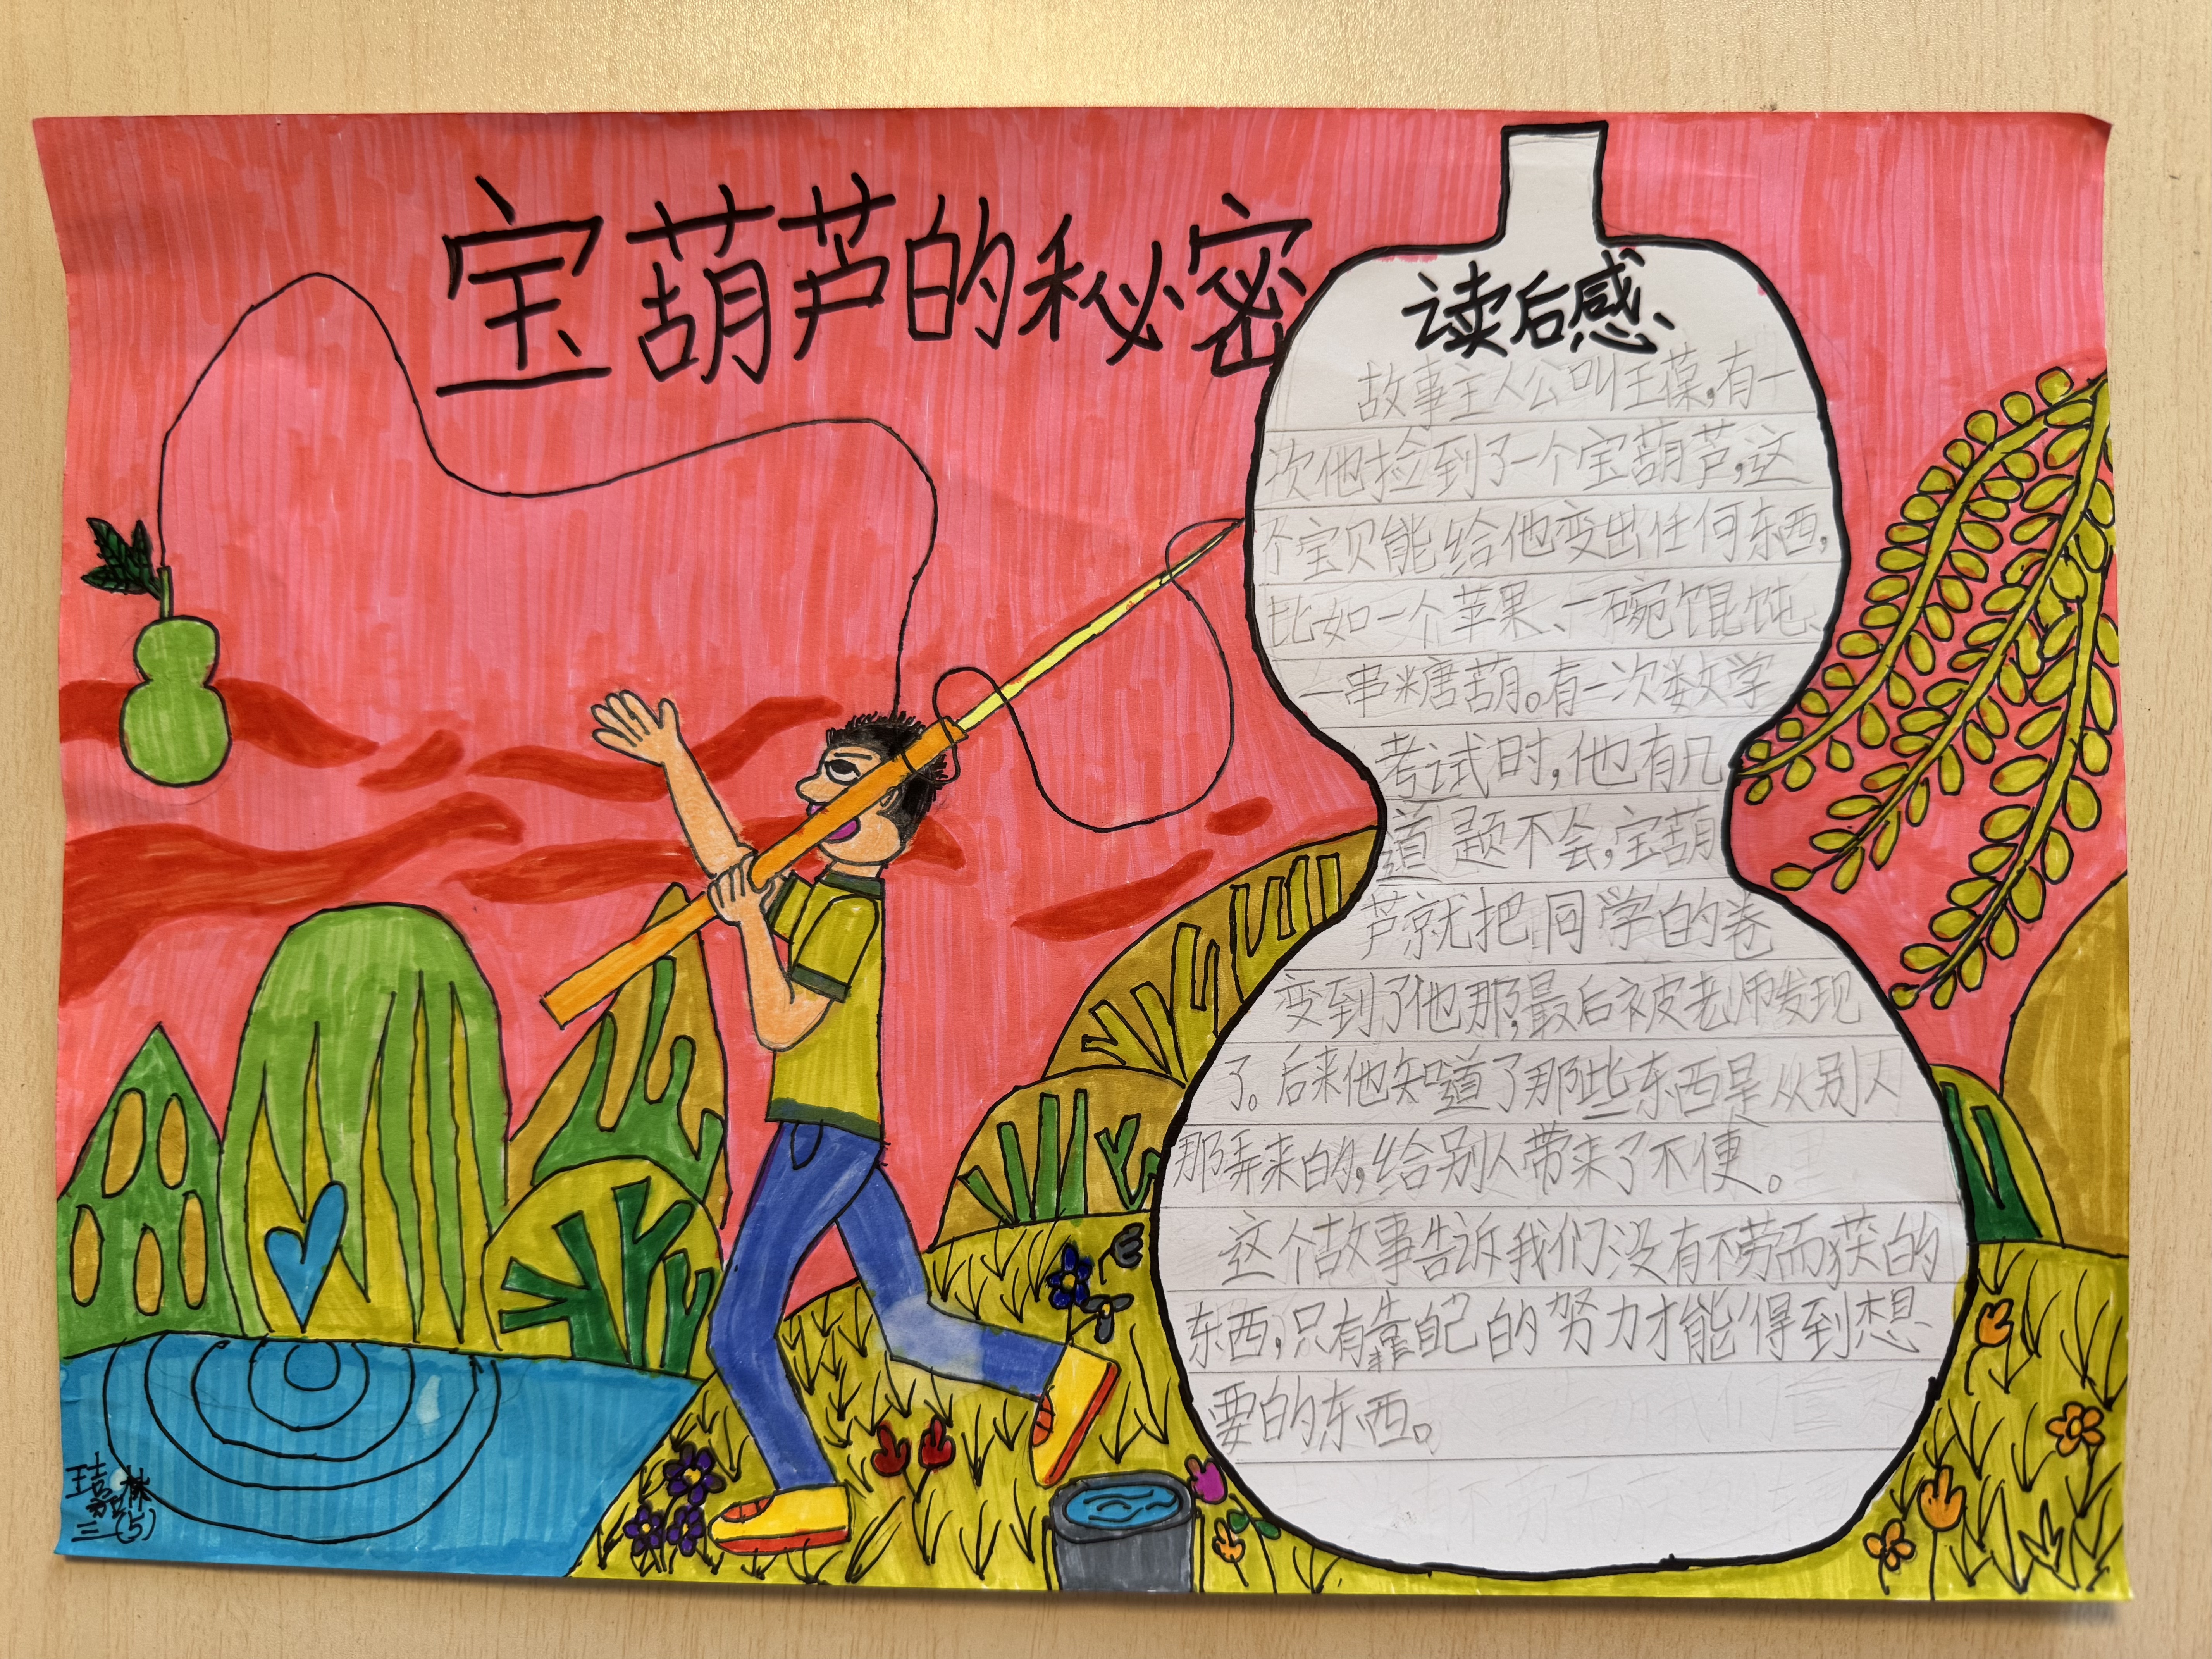 宝葫芦的秘密
读后感
故事主人公叫王葆，有一
次他捡到了一个宝葫芦，这
个宝贝能给他变出任何东西，
比如一个苹果、一碗馄饨、
一串糖葫。有一次数学
考试时，他有几
道题不会，宝葫
芦就把同学的卷
变到了他那，最后被老师发现
了。后来他知道了那些东西是从别人
那弄来的，给别人带来了不便。
这个故事告诉我们没有不劳而获的
东西，只有靠自己的努力才能得到想
要的东西。
三(5)